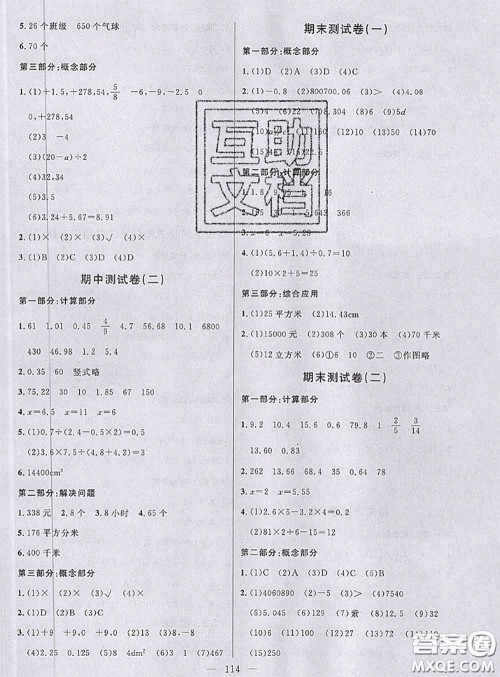 5.26个班级　650个气球
6.70个
第三部分:概念部分
1.(1)+1.5,+278,54,5/8　-6,-9,-2.5　0
0,+278,54
(2)3　-4
(3)(20-a)÷2
(4)32.34
(5)18
(6)3.24+5.67=8.91
2.(1)×　(2)×　(3)√　(4)×
3.(1)B　(2)D　(3)C　(4)D
期中测试卷(二)
第一部分:计算部分
1.61　1.01　0.45　4/9　4.7　56.68　10.1　6800
430　46.98　1.2　5.4
2.0.36　50　60　竖式略
3.75.22　30　10　1.65　67　15
4.x=6.5　x=11　x=6
5.(1)0.7÷(2.4-0.5×4)=1.75
(2)3.6×[7.5÷(2.4+3.6)]=4.5
6.14400cm²
第二部分:解决问题
1.338元　2.8个　3.8小时　4.65个
5.176平方分米
6.400千米
第三部分:概念部分
1.(1)D　(2)B　(3)A　(4)D
2.(1)√　(2)×　(3)√　(4)×
3.(1)+　+9.0　+9.0　(2)12　(3)-8,-
(4)2.125　(5)0.81　(6)4dm²　(7)9.67
期末测试卷(一)
第一部分:概念部分
1.(1)D　(2)A　(3)D　(4)C
2.(1)-0.8　(2)800700.06　(3)>　(4)-8.08
(5)24　(6)22　(7)8,304　(8)96　(9)5d
(10)4
(15)4
第二部分:计算部分
1.1.8
2.165　643　366
3.x=6　x=5.28
4.(1)(5.6+1.4)÷0.7=10
(2)10×2+5=25
第三部分:综合应用
1.(1)25平方米　(2)14.43cm
2.(1)15000元　(2)308个　(3)30本　(4)70千米
(5)12立方米　(6)①6　10　②二　③作图略
期末测试卷(二)
第一部分:计算部分
1.9.2　10.4　15　10　7.8　79　1　2/5　3/14
13.60　0.83
2.262　38.66　13.68　0.64　78　34
3.x=2　x=5
4.(1)2.6×5-3.2×4=0.2
(2)81÷2×6-15=12
第二部分:概念部分
1.(1)C　(2)A　(3)B　(4)C　(5)D
2.(1)4060890　(2)-3.5　(3)>　(4)7540
(5)5.049　(6)129　(7)10　(8)紫　(9)-2
(10)27　(11)10
(15)250
互助
文档
答案圈
MXQE.COM
114